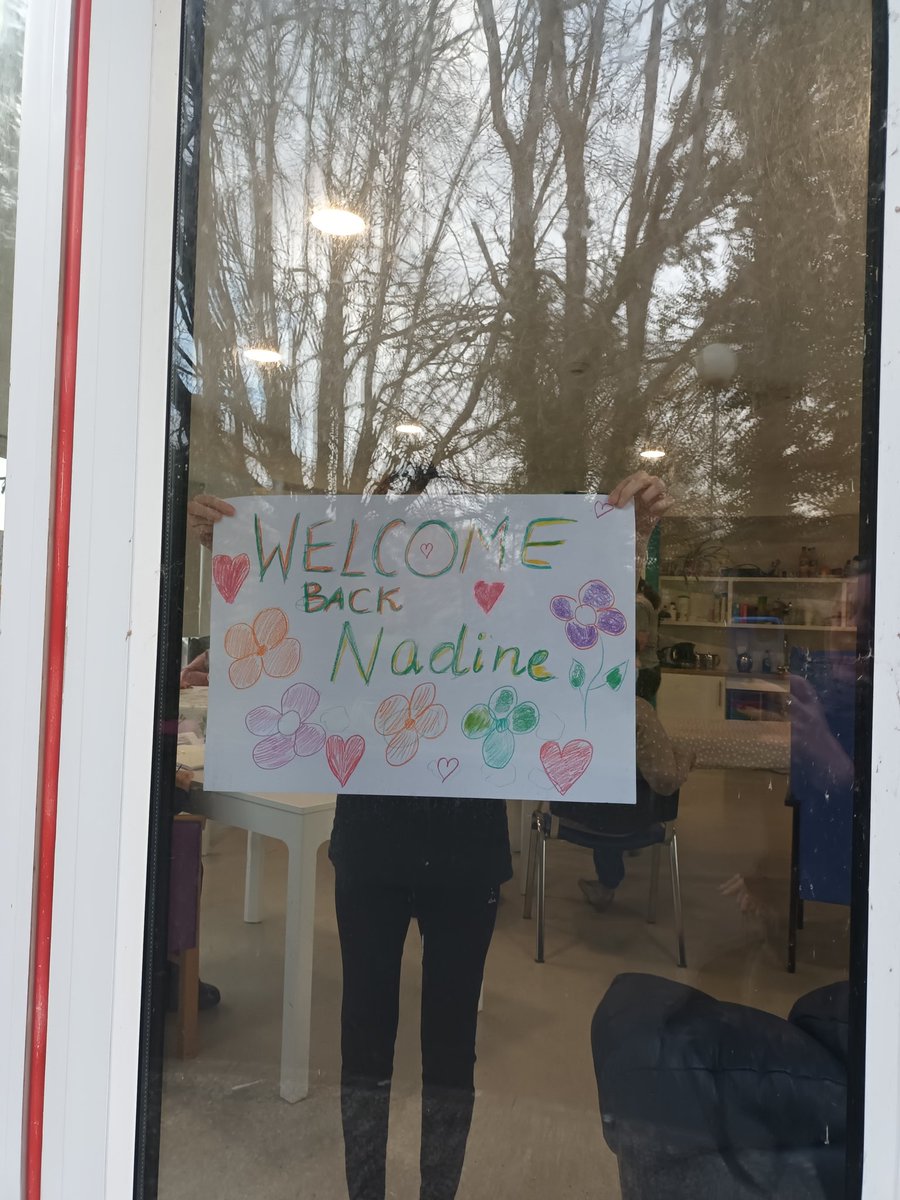 WELCOME
BACK
Nadine